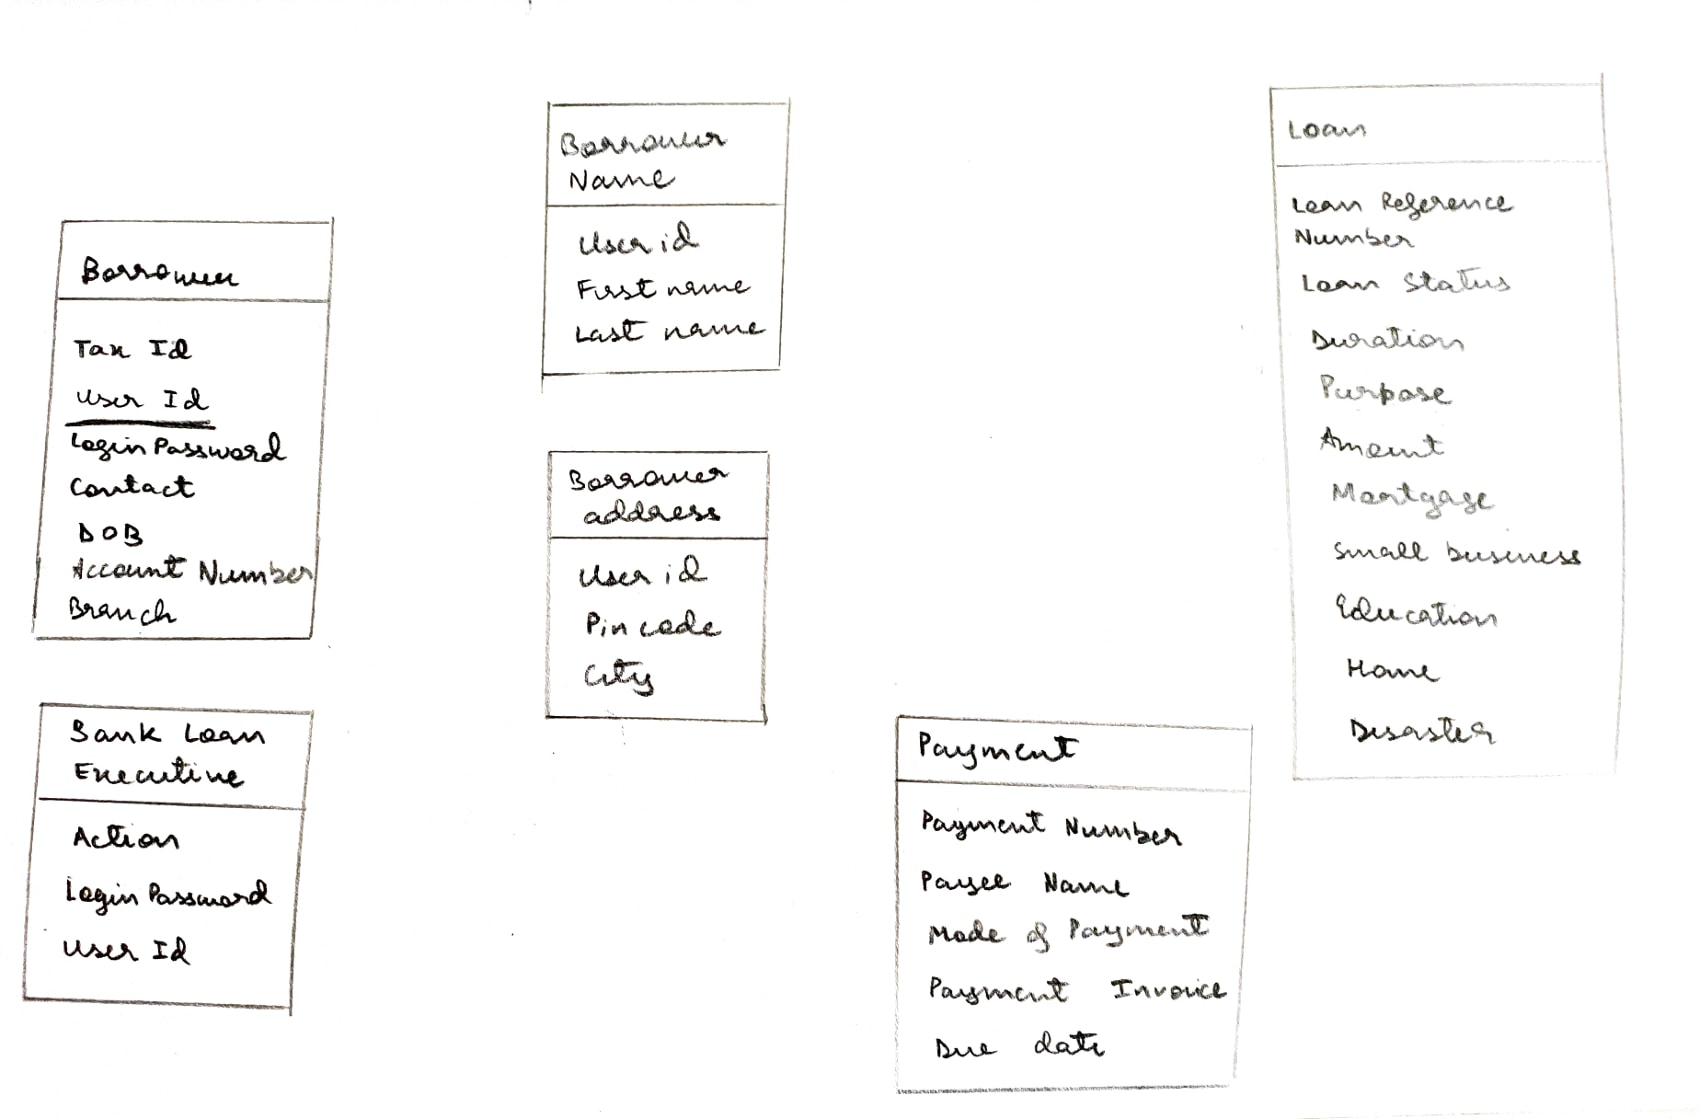 Borrower
Tax Id
User Id
Login Password
Contact
DOB
Account Number
Branch
Bank Loan
Executive
Action
Login Password
User Id
Borrower
Name
User id
First name
Last name
Borrower
address
User id
Pin code
City
Payment
Payment Number
Payee Name
Mode of Payment
Payment Invoice
Due date
Loan
Loan Reference
Number
Loan Status
Duration
Purpose
Amount
Mortgage
Small business
Education
Home
Disaster